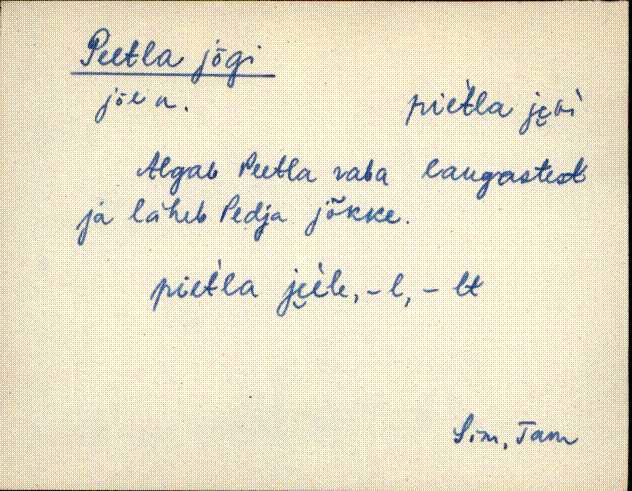 Peetla jõgi
jõe n. pietla ję̀ɢi
Algab Peetla raba laugastest
ja läheb Pedja jõkke.
pietla ję̀ele, -l, -lt
Sim, Tam